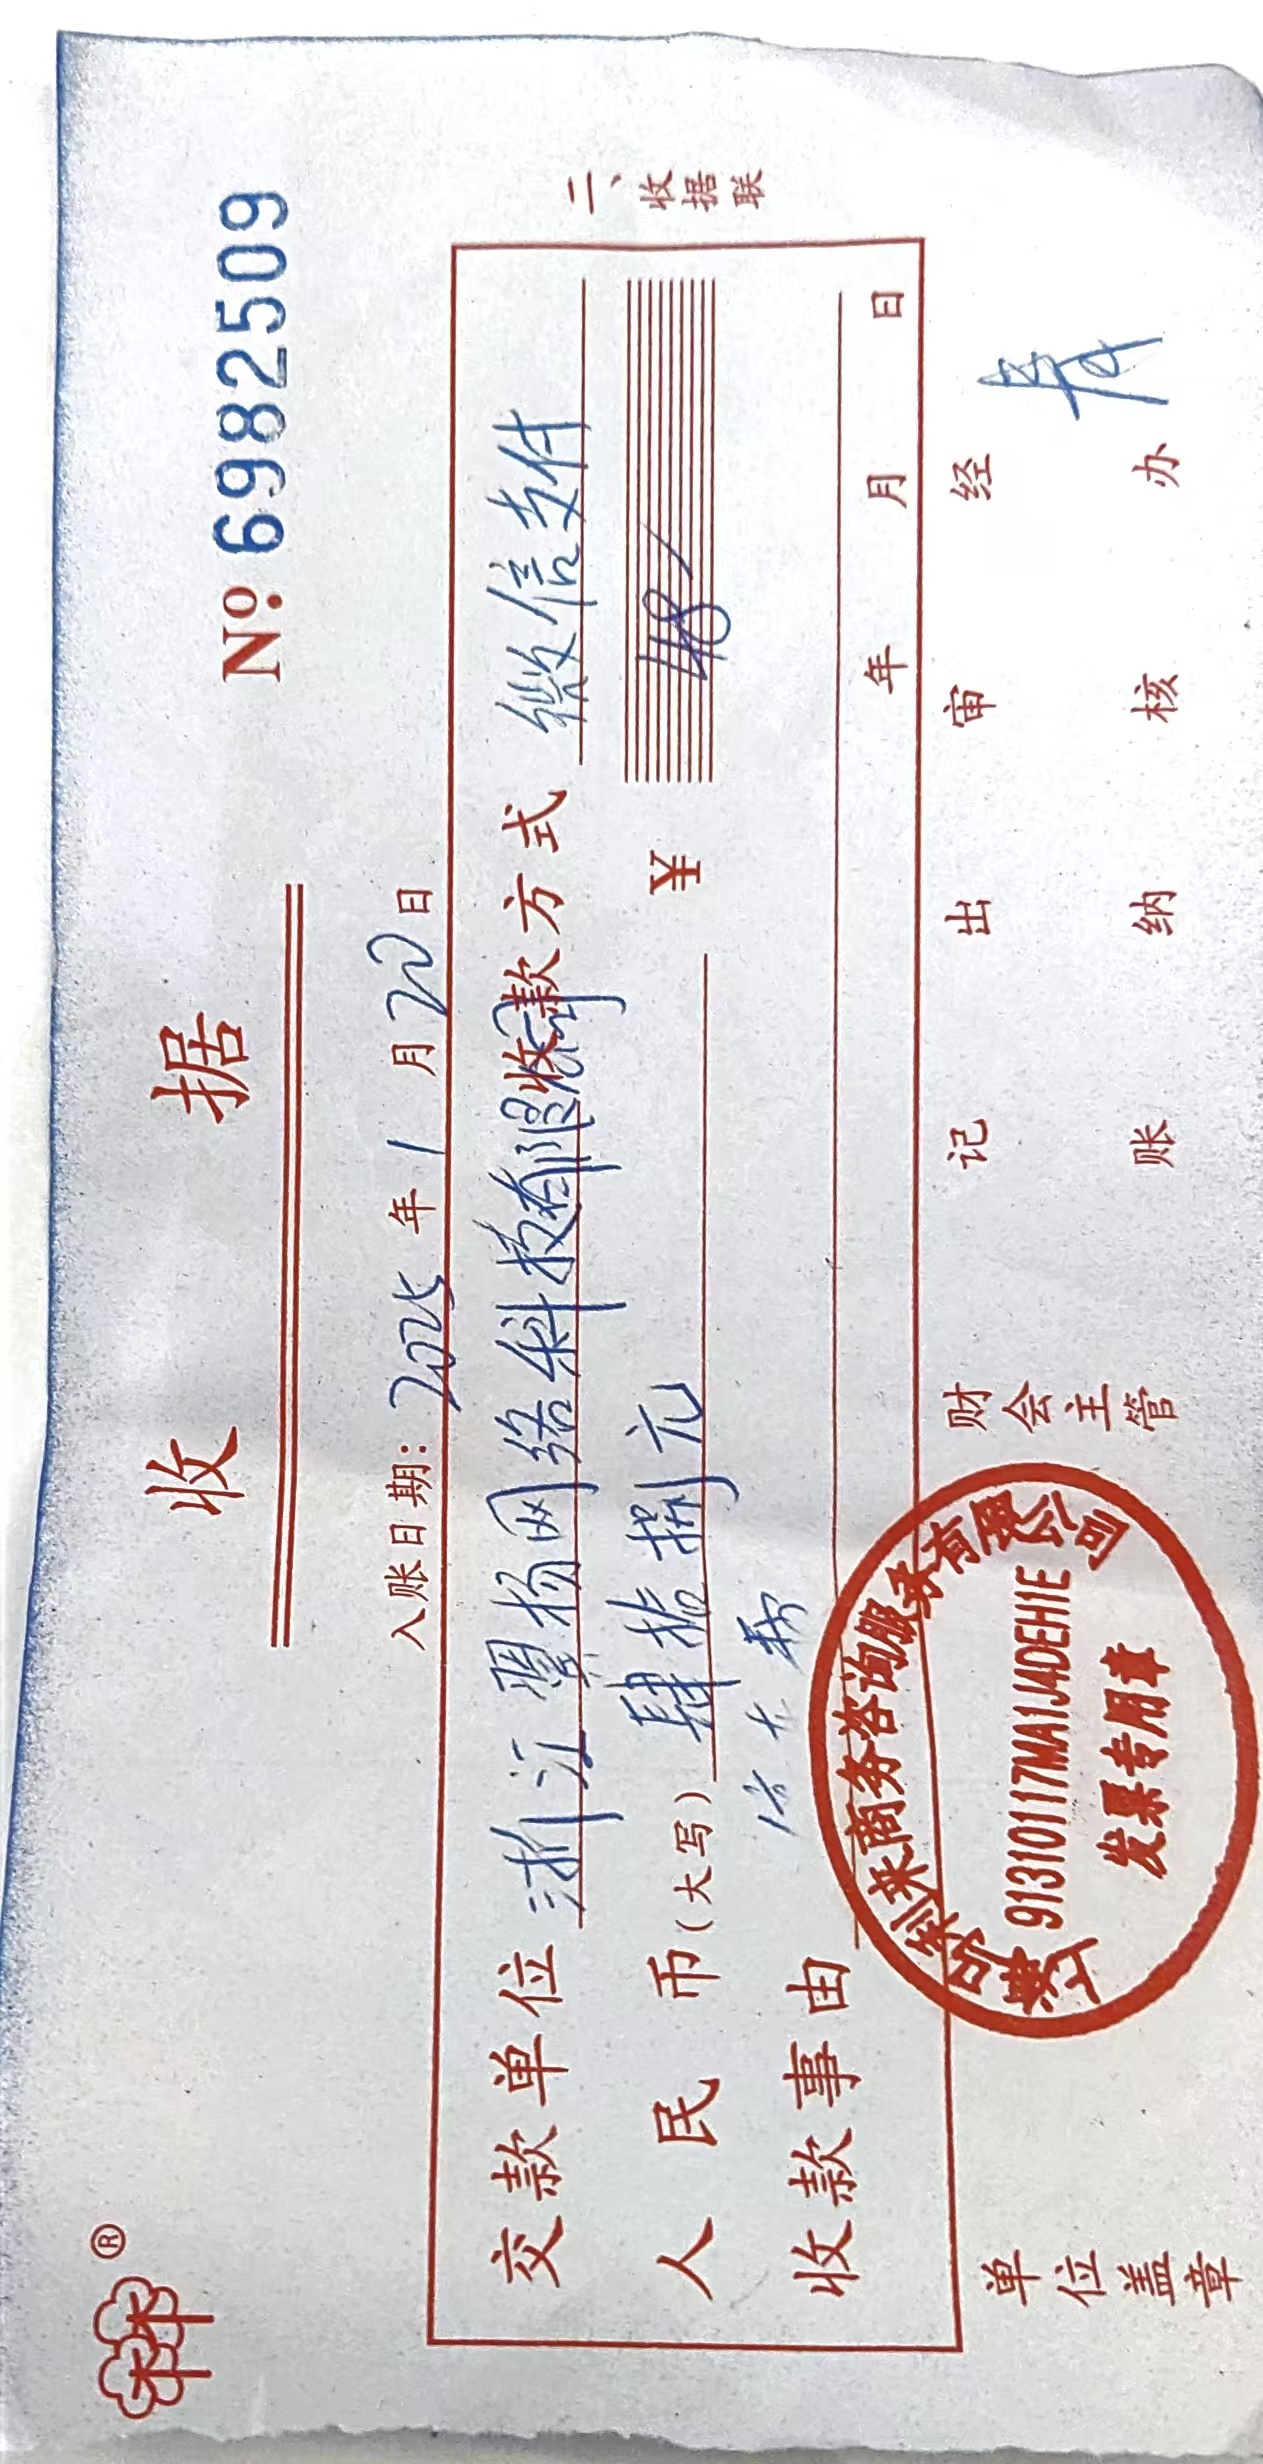 ®
收 据
Nº: 6982509
入账日期: 2025 年 1 月 20 日
交款单位 浙江翼扬网络科技有限公司 收款方式 微信支付
人民币(大写) 肆拾捌元 ¥ 48
收款事由
年 月 日
二、收据联
商务咨询服务有限公司
91310117MA1J4DEH1E
发票专用章
单位盖章 财会主管 记账 出纳 审核 经办